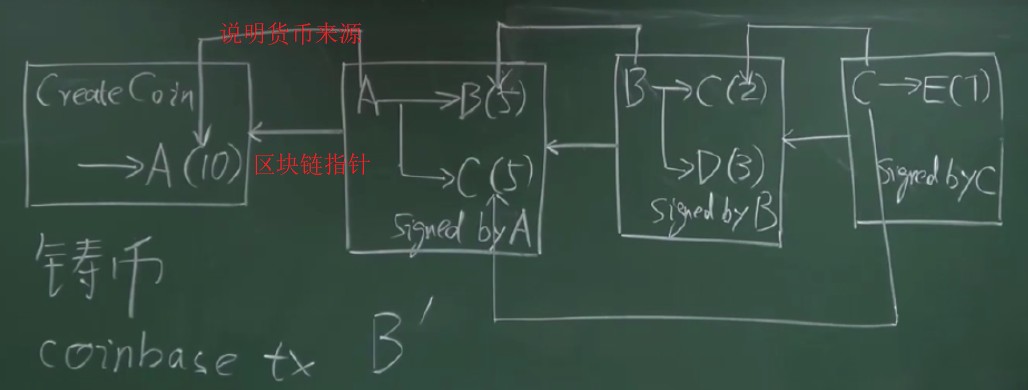 说明货币来源
CreateCoin
A(10)
区块链指针
A
B(5)
C(5)
signed by A
B
C(2)
D(3)
signed by B
C
E(7)
signed by C
铸币
coinbase tx
B'